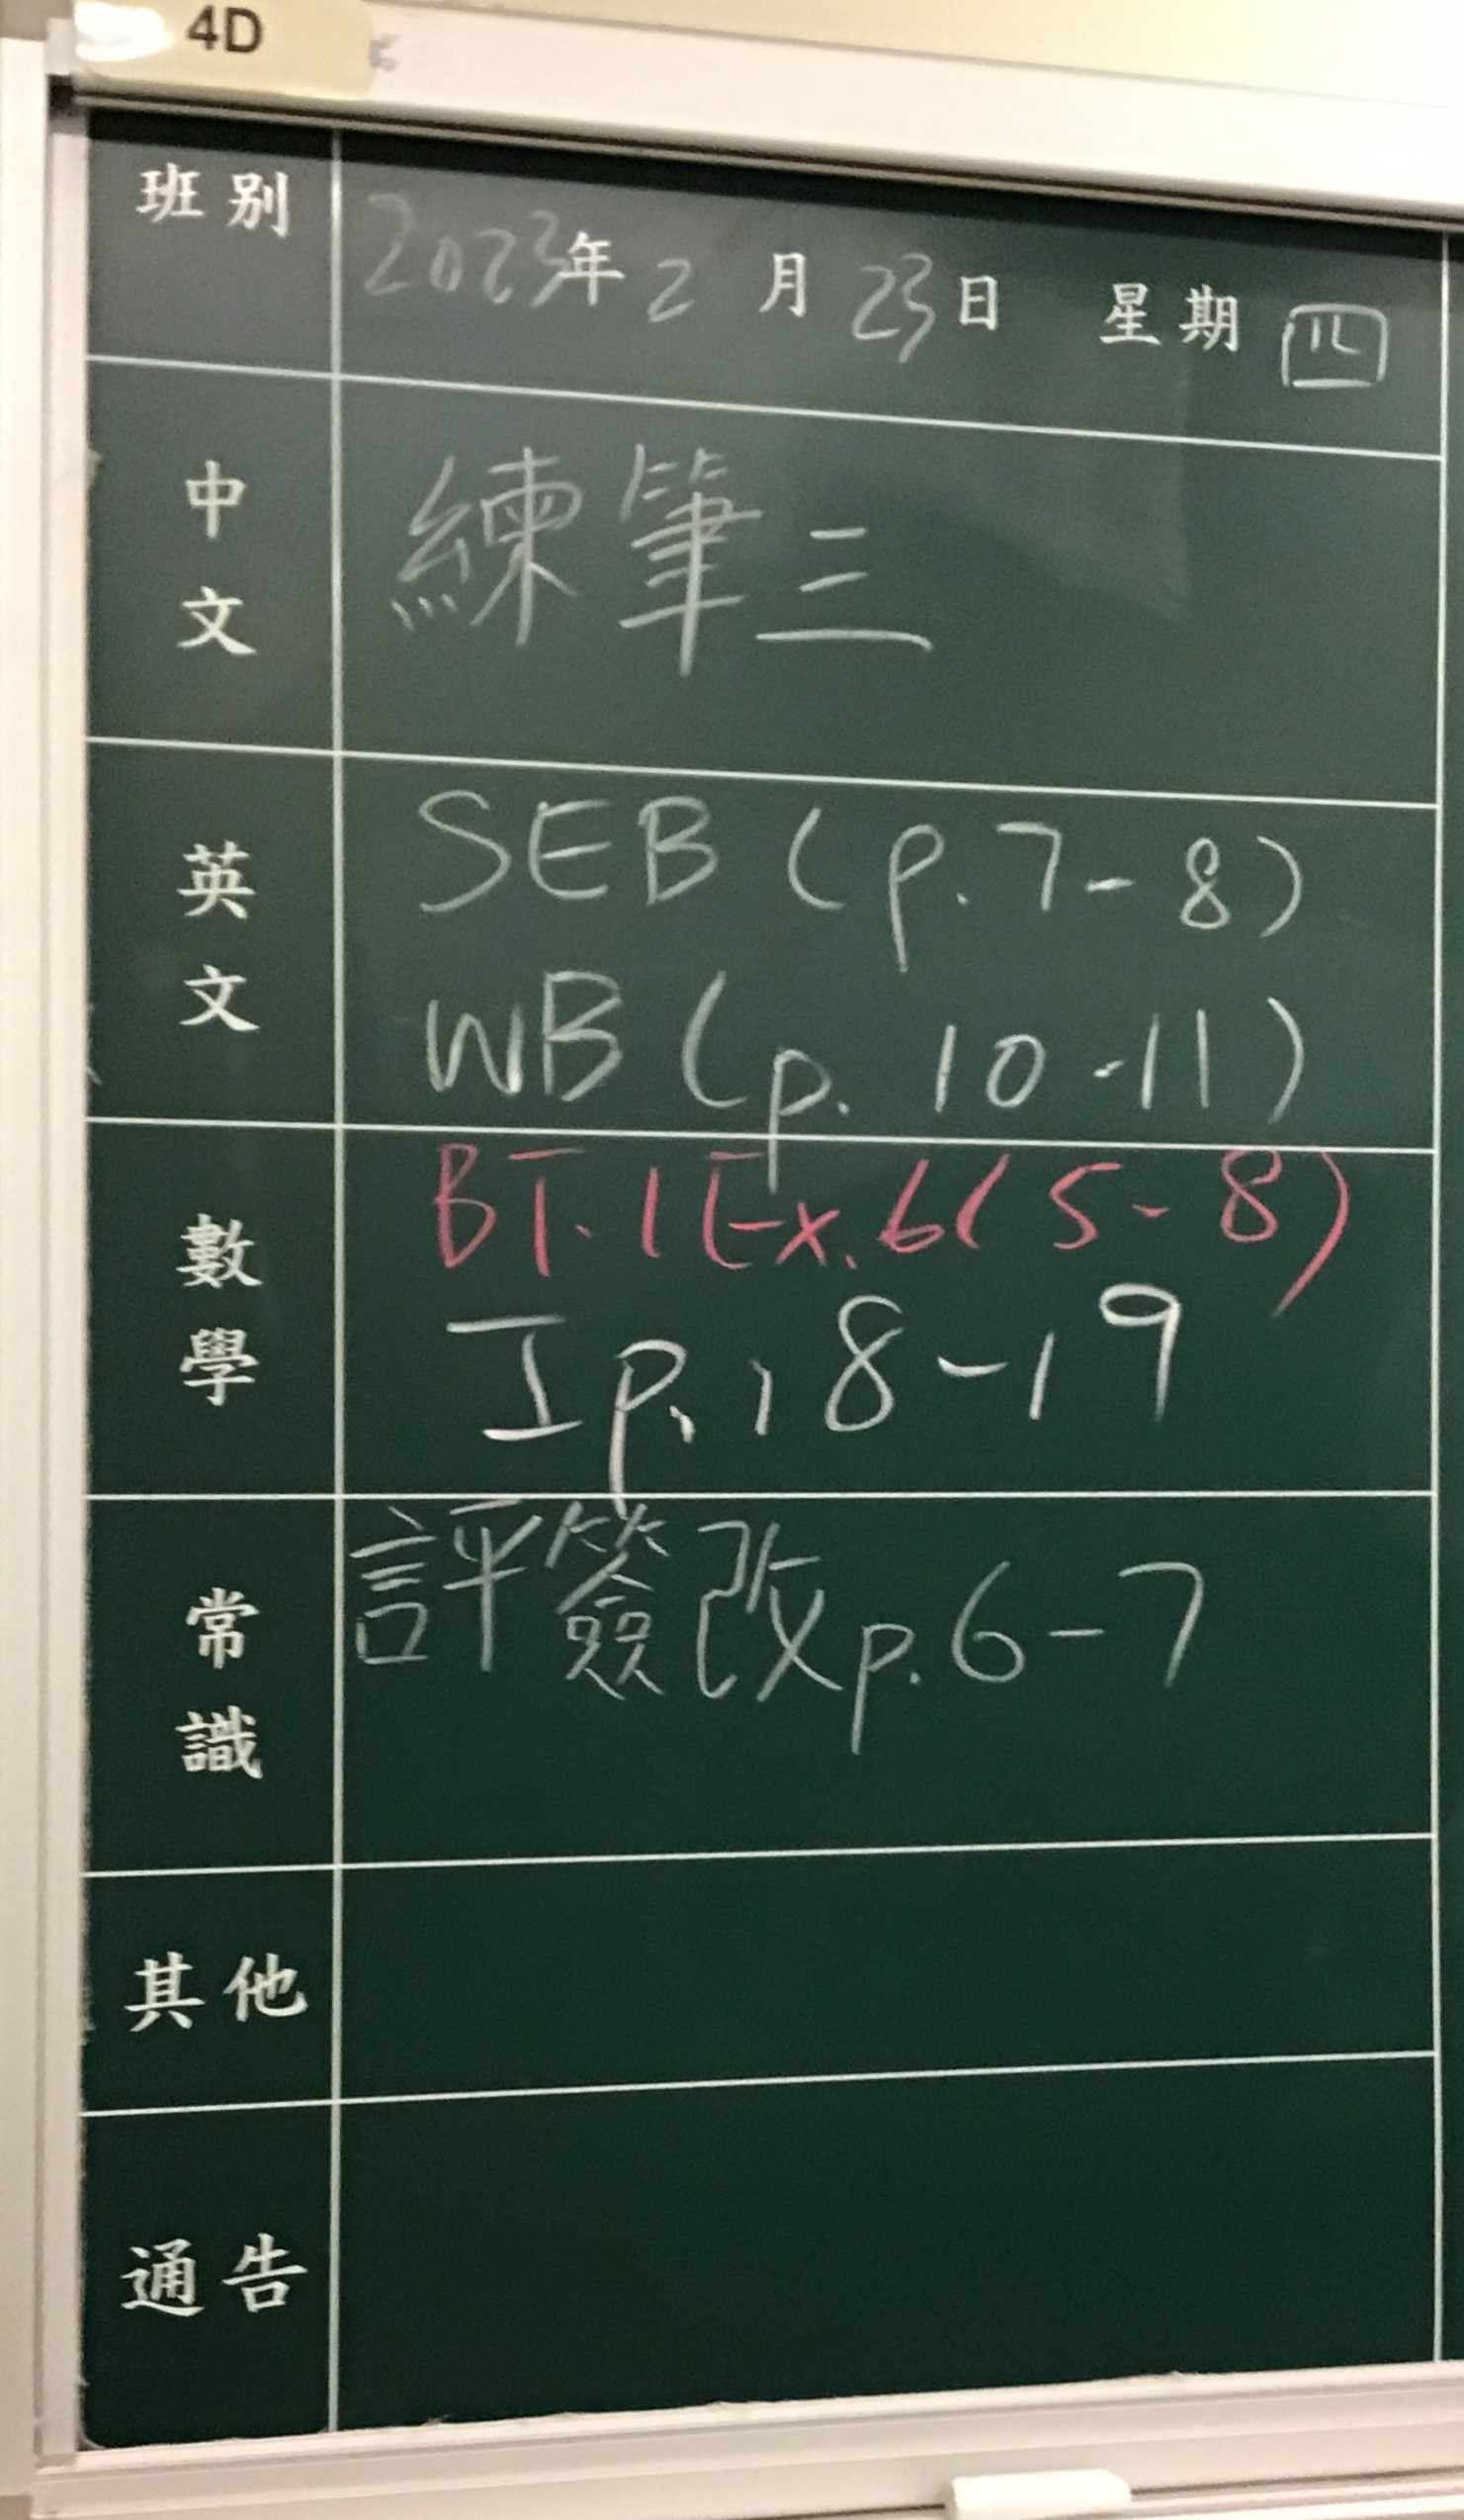 4D
班別 2023年2月23日 星期四
中文 練筆三
英文 SEB (p.7-8)
WB (p. 10-11)
數學 BT.1 Ex.6(5-8)
工p.18-19
常識 評簽改p.6-7
其他
通告